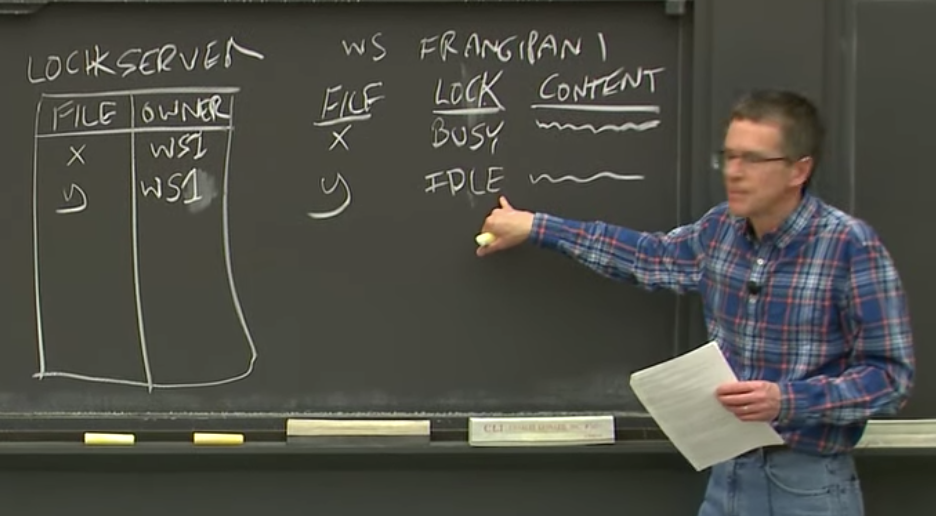 LOCKSERVER
FILE OWNER
x WS1
y WS1
WS FRANGIPANI
FILE LOCK CONTENT
X BUSY
y IDLE